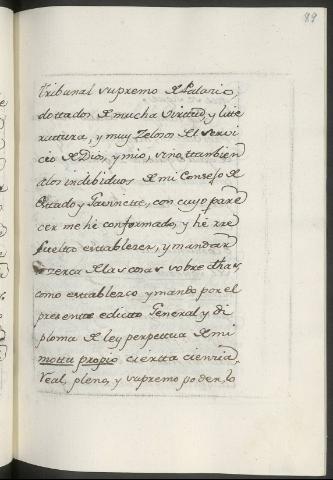 89
tribunal supremo de Palacio
dottados de mucha virtud, y litte
rattura, y muy Zelosos del servi
cio de Dios, y mio, sino ttambien
a los indibiduos de mi Consejo de
Estado y Gavinette, con cuyo pare
cer me hé conformado, y hé rre
sueltto esttablezer, y mandar
azerca de las cosas sobre dhas,
como esttablezco y mando por el
presentte edictto General y di
ploma de ley perpettua de mi
mottu propio cientta ciencia,
Real, pleno, y supremo poder, lo